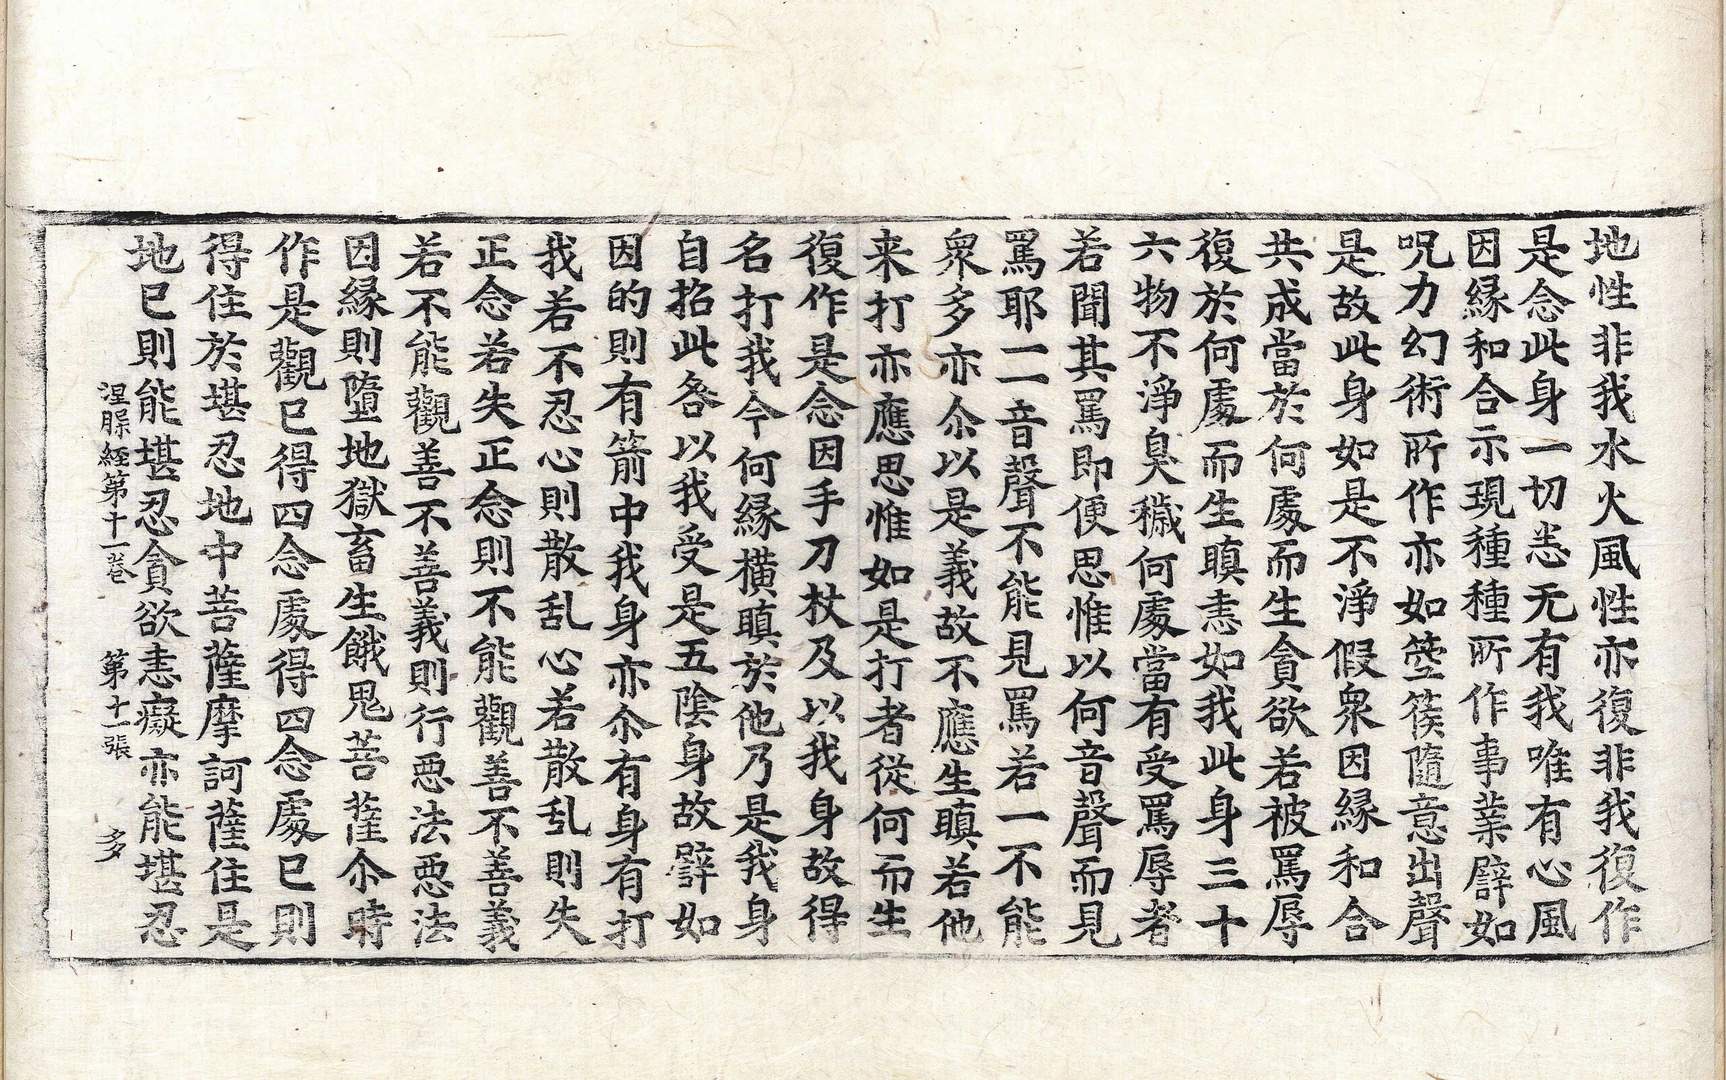 地性非我水火風性亦復非我復作
是念此身一切悉无有我唯有心風
因縁和合示現種種所作事業譬如
呪力幻術所作亦如箜篌隨意出聲
是故此身如是不淨假衆因縁和合
共成當於何處而生貪欲若被罵辱
復於何處而生瞋恚如我此身三十
六物不淨臭穢何處當有受罵辱者
若聞其罵即便思惟以何音聲而見
罵耶一一音聲不能見罵若一不能
衆多亦尒以是義故不應生瞋若他
来打亦應思惟如是打者從何而生
復作是念因手刀杖及以我身故得
名打我今何縁横瞋於他乃是我身
自招此咎以我受是五陰身故譬如
因的則有箭中我身亦尒有身有打
我若不忍心則散乱心若散乱則失
正念若失正念則不能觀善不善義
若不能觀善不善義則行惡法惡法
因縁則墮地獄畜生餓鬼菩薩尒時
作是觀已得四念處得四念處已則
得住於堪忍地中菩薩摩訶薩住是
地已則能堪忍貪欲恚癡亦能堪忍
涅槃經第十一卷 第十一張 多